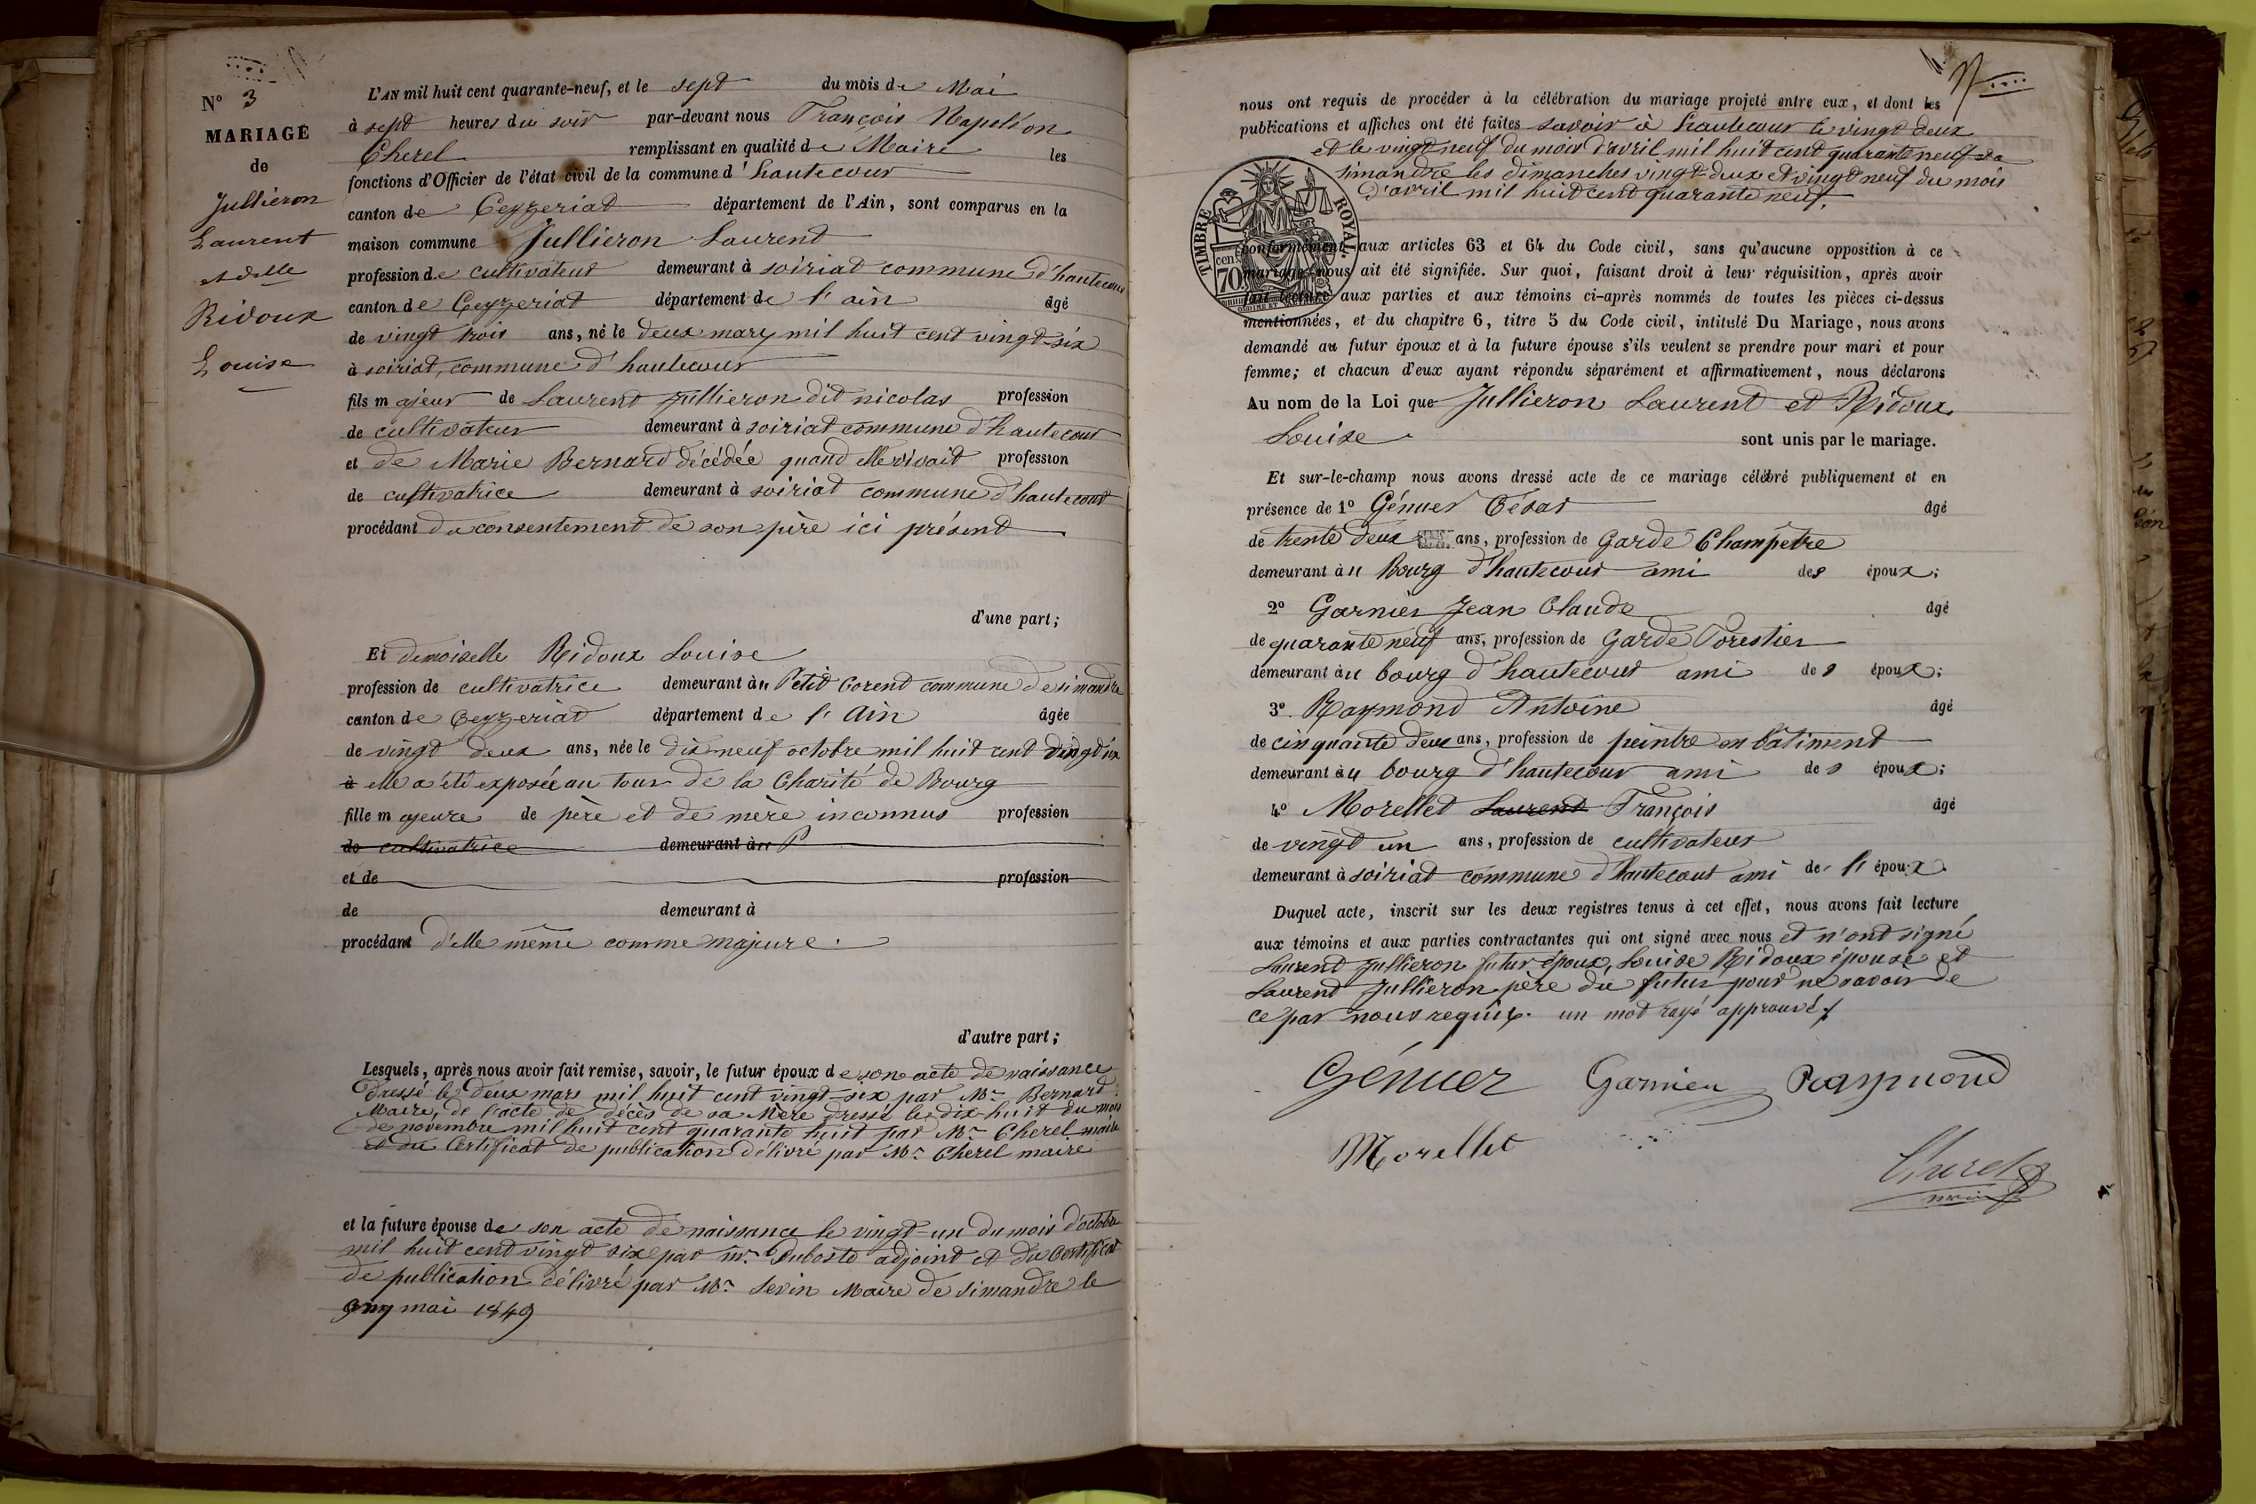 N° 3
MARIAGE
de
Jullieron
Laurent
et delle
Ridoux
Louise
L'AN mil huit cent quarante-neuf, et le sept du mois de Mai
à sept heures du soir par-devant nous François Napoléon
Cherel remplissant en qualité de Maire les
fonctions d'Officier de l'état civil de la commune d'hautecour
canton de Ceyzeriat département de l'Ain, sont comparus en la
maison commune Jullieron Laurent
profession de cultivateur demeurant à soiriat commune d'hautecour
canton de Ceyzeriat département de l'ain âgé
de vingt trois ans, né le deux mars mil huit cent vingt-six
à soiriat, commune d'hautecour
fils majeur de Laurent Jullieron dit nicolas profession
de cultivateur demeurant à soiriat commune d'hautecour
et de Marie Bernard décédée quand elle vivait profession
de cultivatrice demeurant à soiriat commune d'hautecour
procédant du consentement de son père ici présent
d'une part;
Et demoiselle Ridoux Louise
profession de cultivatrice demeurant au Petit Corent commune de simandre
canton de Ceyzeriat département de l'Ain âgée
de vingt deux ans, née le dix neuf octobre mil huit cent vingt six
à elle a été exposée au tour de la Charité de Bourg
fille majeure de père et de mère inconnus profession
de cultivatrice demeurant au P
et de profession
de demeurant à
procédant d'elle même comme majeure.
d'autre part;
Lesquels, après nous avoir fait remise, savoir, le futur époux de son acte de naissance
dressé le deux mars mil huit cent vingt-six par Mr Bernard
Maire, de l'acte de décès de sa Mère dressé le dix-huit du mois
de novembre mil huit cent quarante huit par Mr Cherel maire
et du Certificat de publication délivré par Mr Cherel maire
et la future épouse de son acte de naissance le vingt-un du mois d'octobre
mil huit cent vingt six par mr Duboste adjoint et du Certificat
de publication délivré par Mr Sevin Maire de simandre le
mai 1849
4
nous ont requis de procéder à la célébration du mariage projeté entre eux, et dont les
publications et affiches ont été faites savoir à hautecour le vingt deux
et le vingt neuf du mois d'avril mil huit cent quarante neuf et a
simandre les dimanches vingt-deux et vingt neuf du mois
d'avril mil huit cent quarante neuf.
TIMBRE ROYAL
70 cent.
conformément aux articles 63 et 64 du Code civil, sans qu'aucune opposition à ce
mariage nous ait été signifiée. Sur quoi, faisant droit à leur réquisition, après avoir
fait lecture aux parties et aux témoins ci-après nommés de toutes les pièces ci-dessus
mentionnées, et du chapitre 6, titre 5 du Code civil, intitulé Du Mariage, nous avons
demandé au futur époux et à la future épouse s'ils veulent se prendre pour mari et pour
femme; et chacun d'eux ayant répondu séparément et affirmativement, nous déclarons
Au nom de la Loi que Jullieron Laurent et Ridoux
Louise sont unis par le mariage.
Et sur-le-champ nous avons dressé acte de ce mariage célébré publiquement et en
présence de 1° Génuer César âgé
de trente deux ans, profession de Garde Champêtre
demeurant au Bourg d'hautecour ami des époux;
2° Garnier Jean Claude âgé
de quarante neuf ans, profession de Garde Forestier
demeurant au bourg d'hautecour ami des époux;
3° Raymond Antoine âgé
de cinquante deux ans, profession de peintre en bâtiment
demeurant au bourg d'hautecour ami des époux;
4° Morellet Laurent François âgé
de vingt un ans, profession de cultivateur
demeurant à soiriat commune d'hautecour ami de l'époux.
Duquel acte, inscrit sur les deux registres tenus à cet effet, nous avons fait lecture
aux témoins et aux parties contractantes qui ont signé avec nous et n'ont signé
Laurent Jullieron futur époux, Louise Ridoux épouse et
Laurent Jullieron père du futur pour ne savoir de
ce par nous requis. un mot rayé approuvé
Génuer Garnier Raymond
Morellet
Cherel
maire